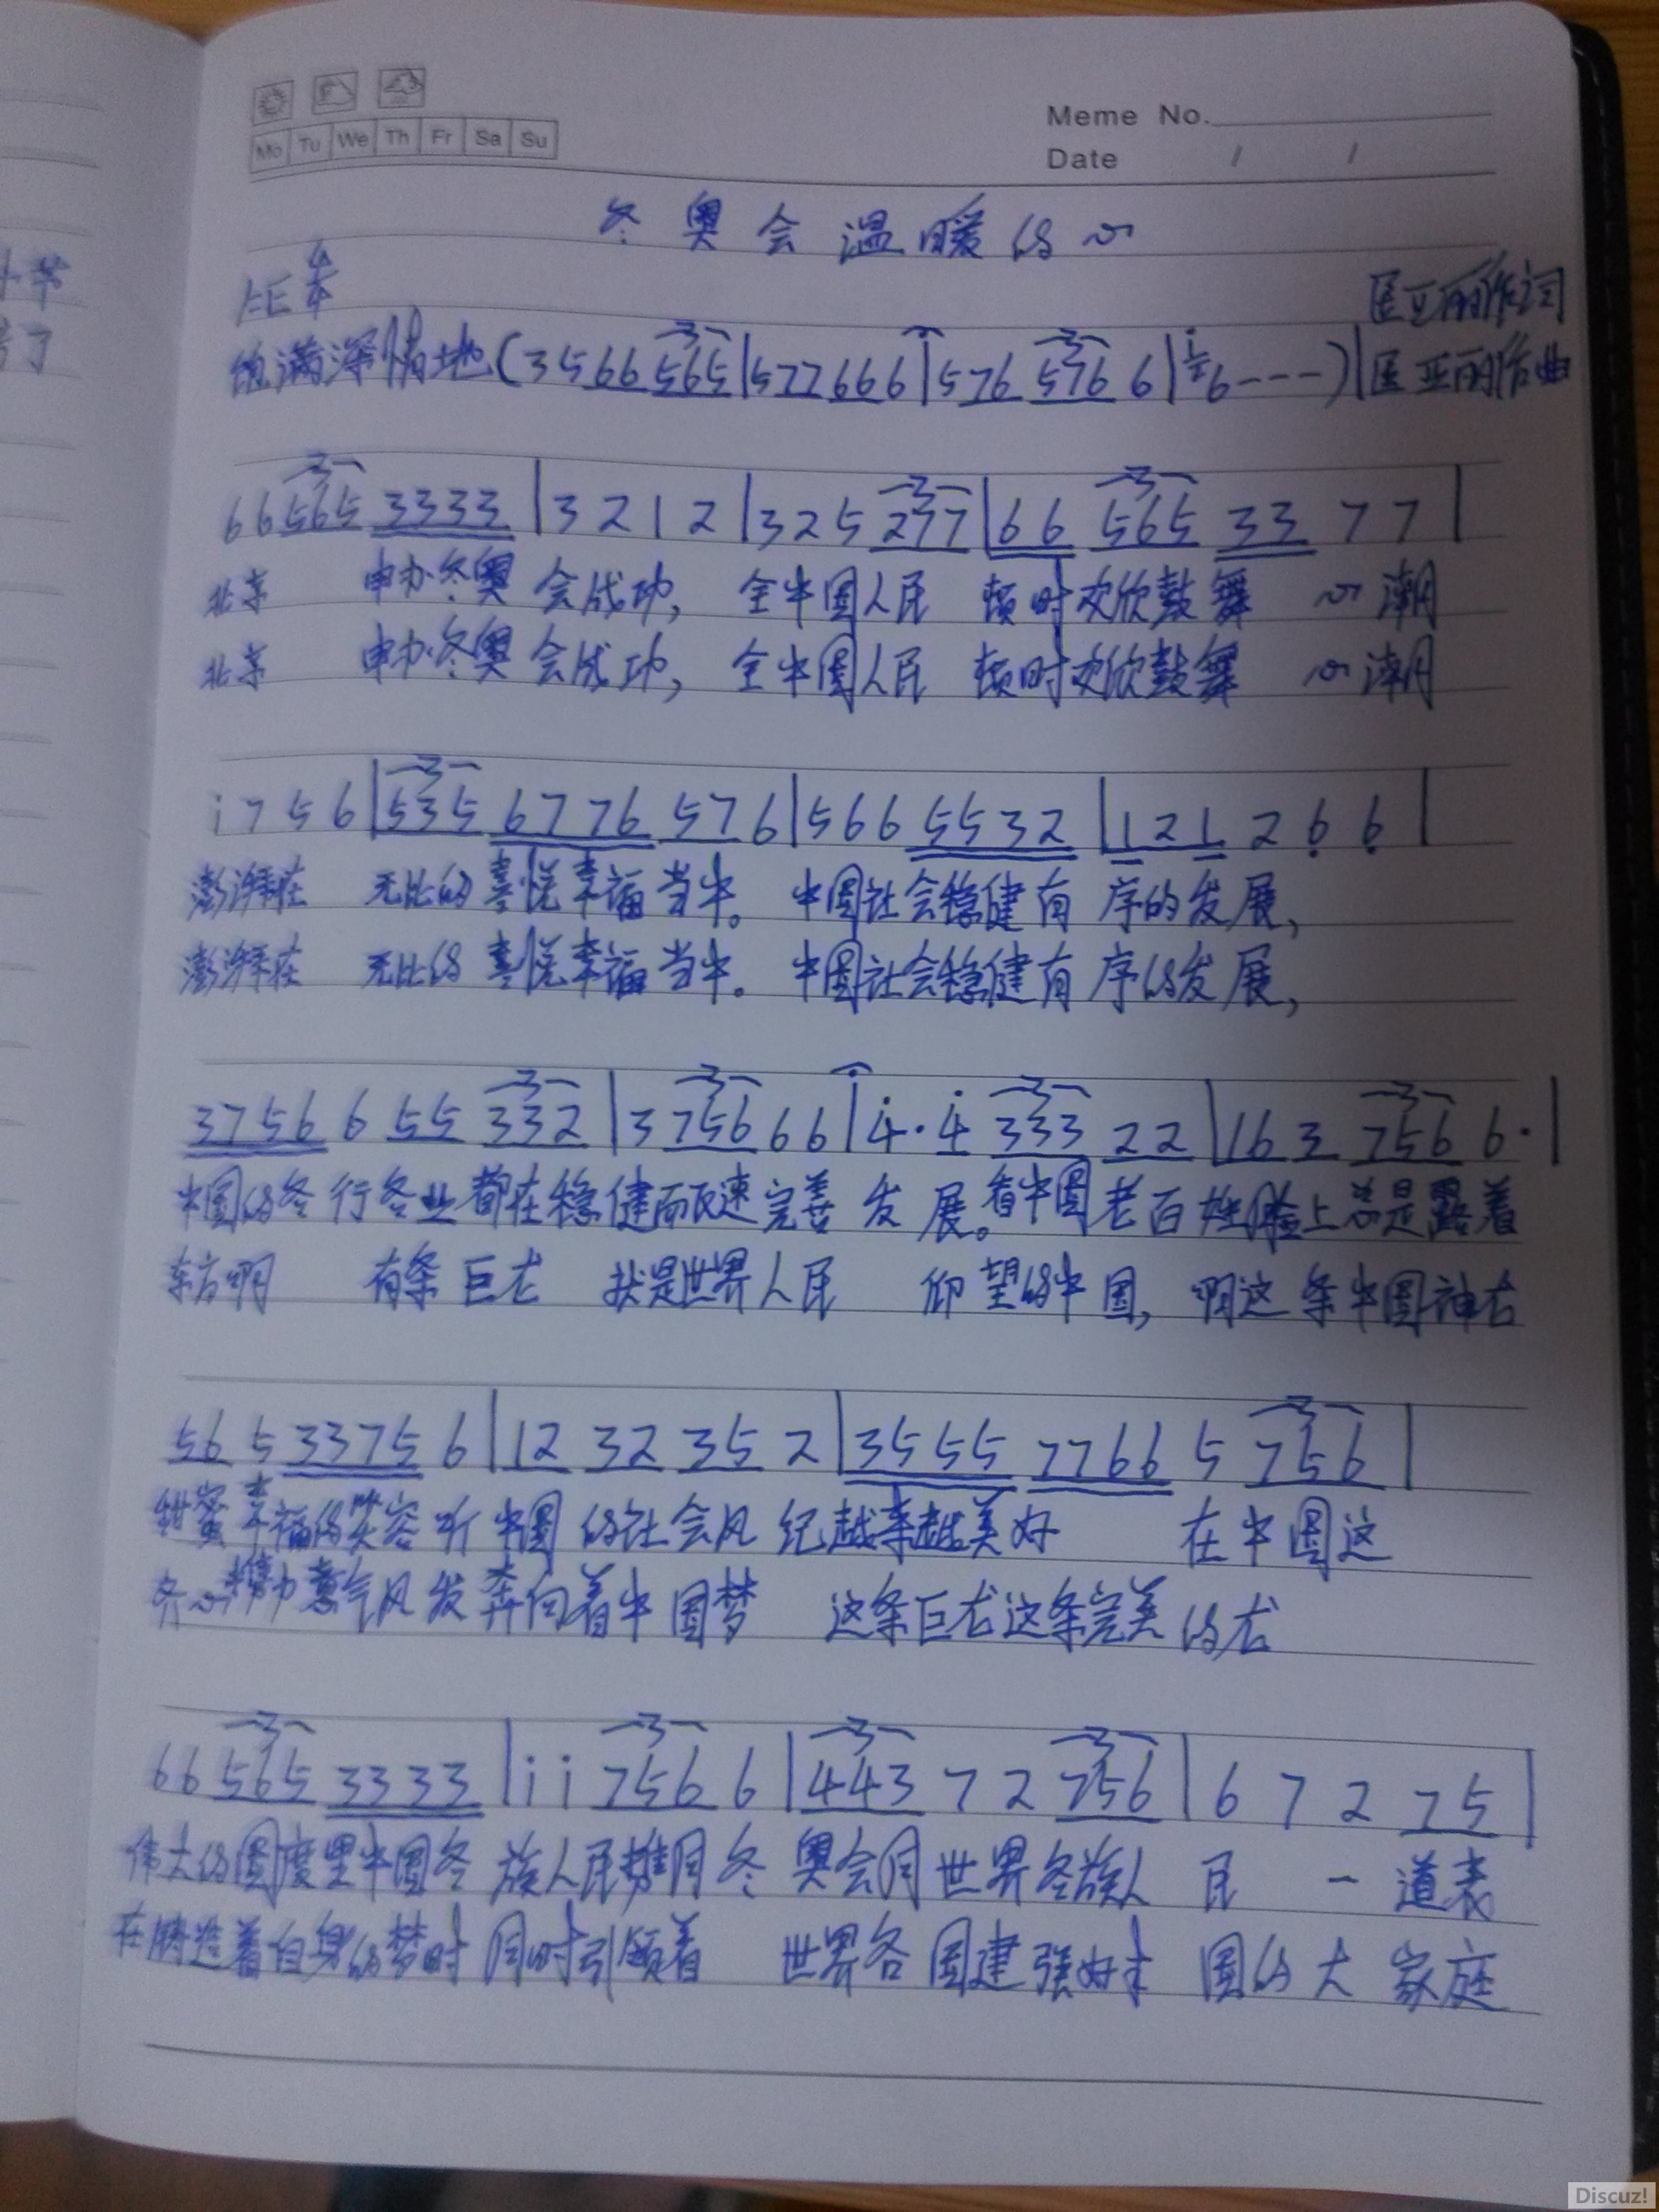 Mo Tu We Th Fr Sa Su
Meme No.
Date / /
冬奥会温暖的心
1=E 4/4
匡亚丽作词
饱满深情地(3 5 66 565|5 77 66 6|5 76 576 6|6 - - - -)|匡亚丽作曲
6 6 565 3333|3 2 1 2|3 2 5 277|66 565 33 7 7|
北京 申办冬奥会成功, 全中国人民 顿时欢欣鼓舞 心潮
北京 申办冬奥会成功, 全中国人民 顿时欢欣鼓舞 心潮
i 7 5 6|535 6776 57 6|5 6 6 5532|1 2 1 2 6 6|
澎湃在 无比的喜悦幸福当中。中国社会稳健有序的发展,
澎湃在 无比的喜悦幸福当中。中国社会稳健有序的发展,
3756 6 55 332|3 756 6 6|4· 4 333 22|16 3 756 6·|
中国的各行各业都在稳健而快速完善发展。看中国老百姓脸上总是露着
东方啊 有条巨龙 我是世界人民 仰望的中国, 啊这条中国神龙
56 5 3375 6|12 32 35 2|3555 7766 5 756|
甜蜜幸福的笑容听中国的社会风纪越来越美好 在中国这
齐心携力意气风发奔向着中国梦 这条巨龙这条完美的龙
6 6 565 3333|i i 756 6|443 7 2 756|6 7 2 75|
伟大的国度里中国各族人民携同冬奥会同世界各族人民 一道表
在铸造着自身的梦时同时引领着 世界各国建强好 国的大家庭
Discuz!